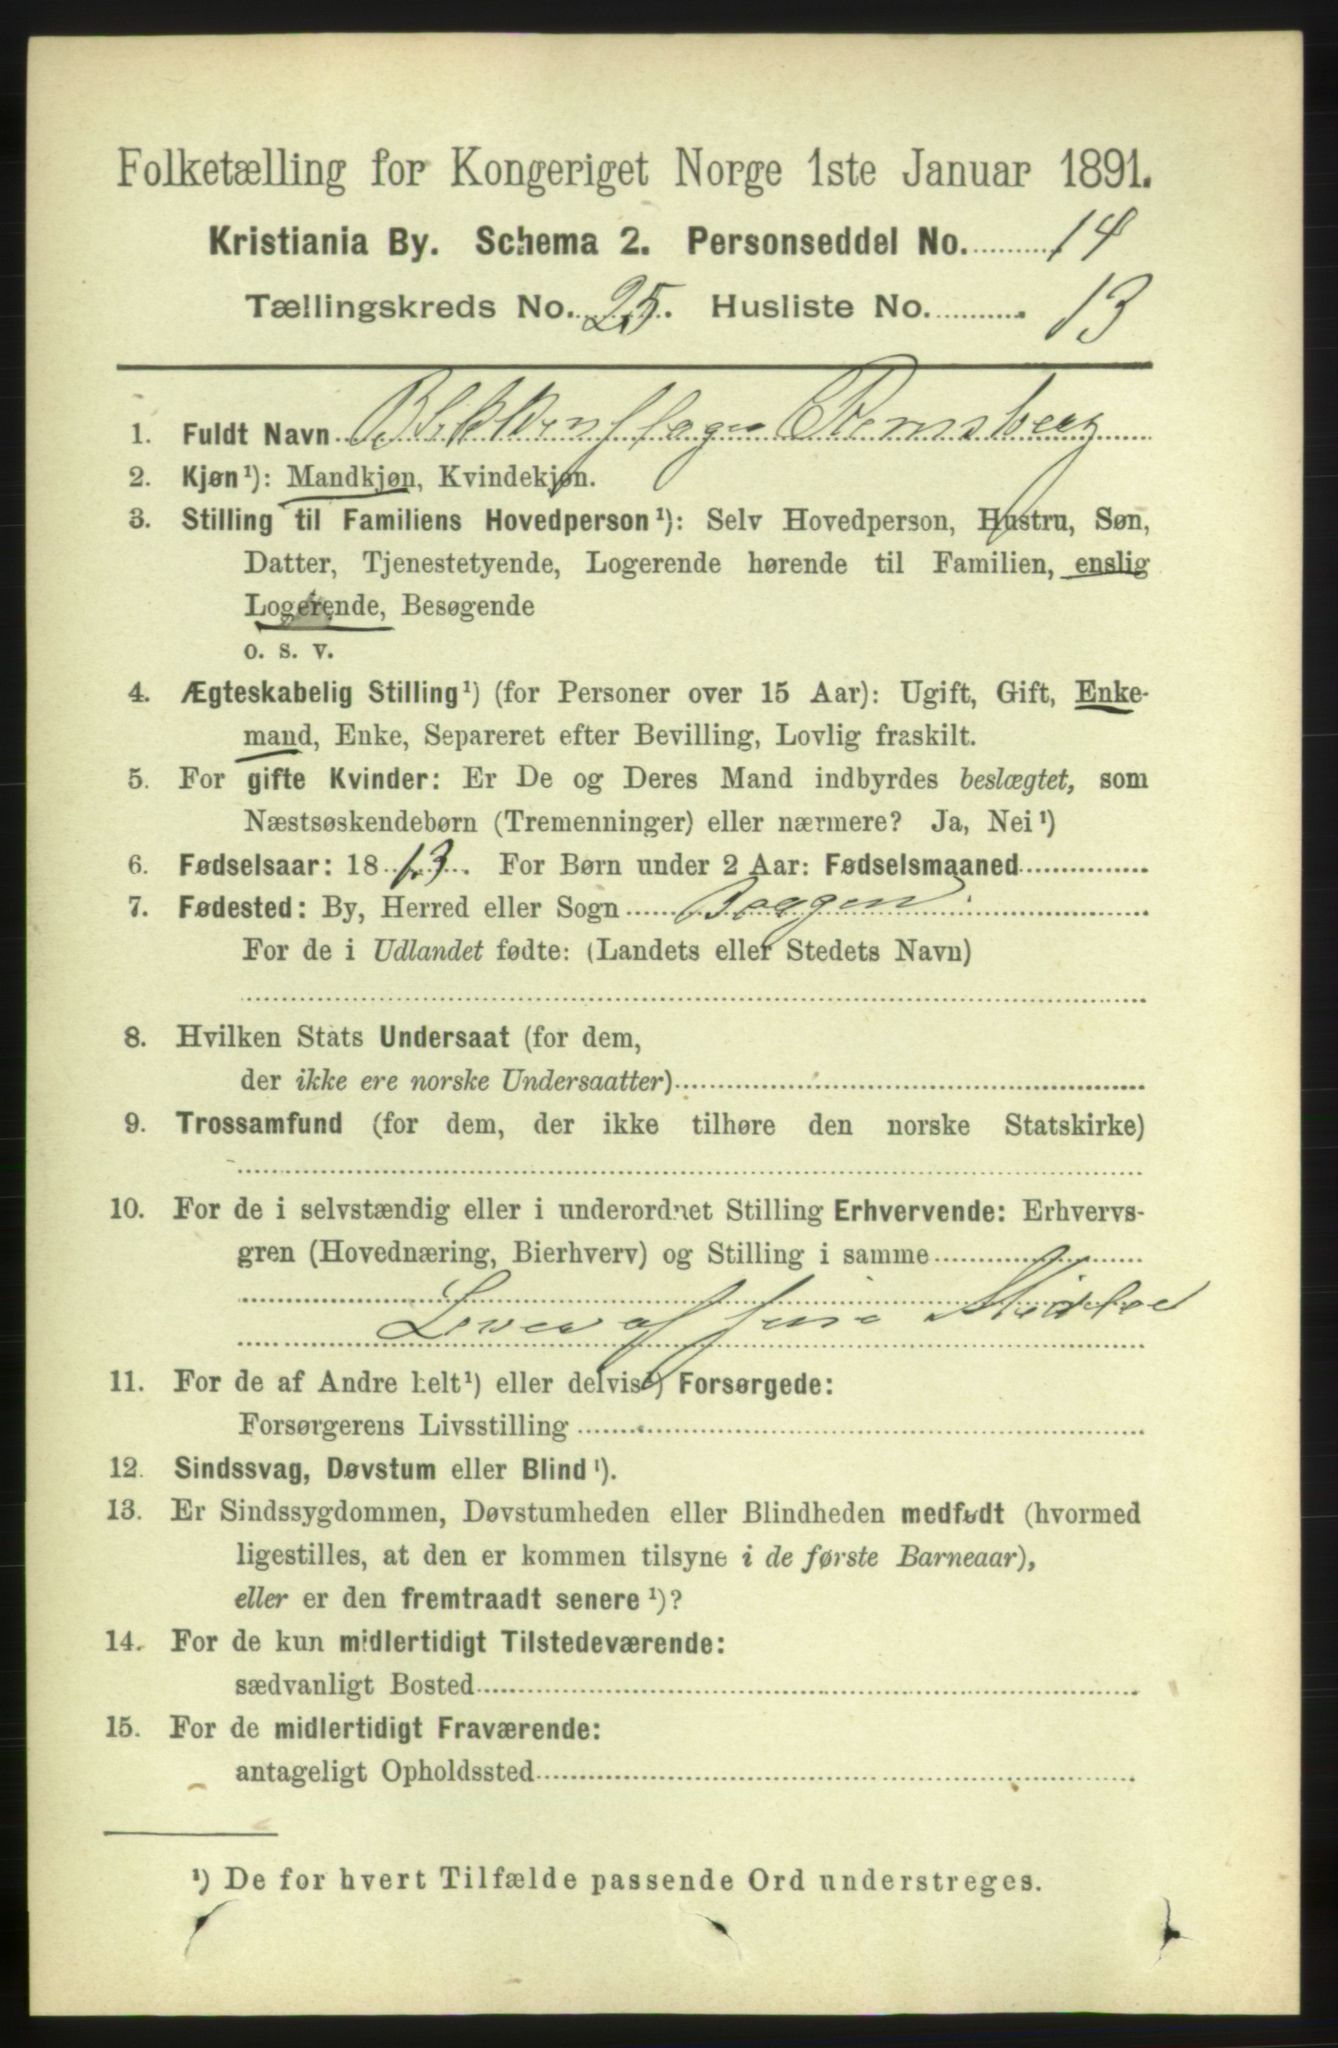 Folketælling for Kongeriget Norge 1ste Januar 1891.
Kristiania By. Schema 2. Personseddel No. 14
Tællingskreds No. 25. Husliste No. 13
1. Fuldt Navn
2. Kjøn¹): Mandkjøn, Kvindekjøn.
3. Stilling til Familiens Hovedperson¹): Selv Hovedperson, Hustru, Søn,
Datter, Tjenestetyende, Logerende hørende til Familien, enslig
Logerende, Besøgende
o. s. v.
4. Ægteskabelig Stilling¹) (for Personer over 15 Aar): Ugift, Gift, Enke-
mand, Enke, Separeret efter Bevilling, Lovlig fraskilt.
5. For gifte Kvinder: Er De og Deres Mand indbyrdes beslægtet, som
Næstsøskendebørn (Tremenninger) eller nærmere? Ja, Nei¹)
6. Fødselsaar: 18 13. For Børn under 2 Aar: Fødselsmaaned
7. Fødested: By, Herred eller Sogn
For de i Udlandet fødte: (Landets eller Stedets Navn)
8. Hvilken Stats Undersaat (for dem,
der ikke ere norske Undersaatter)
9. Trossamfund (for dem, der ikke tilhøre den norske Statskirke)
10. For de i selvstændig eller i underordnet Stilling Erhvervende: Erhvervs-
gren (Hovednæring, Bierhverv) og Stilling i samme
Lever af sine Midler
11. For de af Andre helt¹) eller delvis¹) Forsørgede:
Forsørgerens Livsstilling
12. Sindssvag, Døvstum eller Blind¹).
13. Er Sindssygdommen, Døvstumheden eller Blindheden medfødt (hvormed
ligestilles, at den er kommen tilsyne i de første Barneaar),
eller er den fremtraadt senere¹)?
14. For de kun midlertidigt Tilstedeværende:
sædvanligt Bosted
15. For de midlertidigt Fraværende:
antageligt Opholdssted
¹) De for hvert Tilfælde passende Ord understreges.